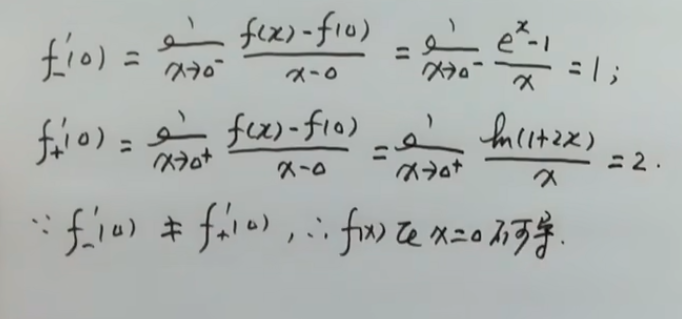 f₋'(0) = lim x→0⁻ (f(x)-f(0))/(x-0) = lim x→0⁻ (eˣ-1)/x = 1;
f₊'(0) = lim x→0⁺ (f(x)-f(0))/(x-0) = lim x→0⁺ ln(1+2x)/x = 2.
∵ f₋'(0) ≠ f₊'(0), ∴ f(x) 在 x=0 不可导.